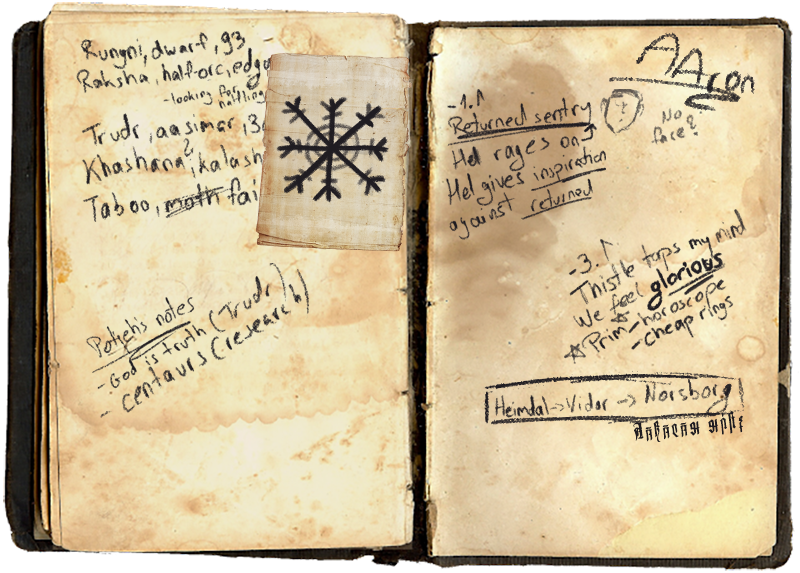 Rungni, dwarf, 93
Raksha, half-orc, edgy
-looking for halfling
Trudr, aasimar, 3
Khashana?, kalash
Taboo, moth fai
notes
-God is truth (Trudr)
-centaurs (research)
AAron
-1.↑
Returned sentry
No
face?
Hel rages on
Hel gives inspiration
against returned
-3.↑
Thistle taps my mind
We feel glorious
☆Prim-horoscope
-cheap rings
Heimdal->Vidar->Norsborg